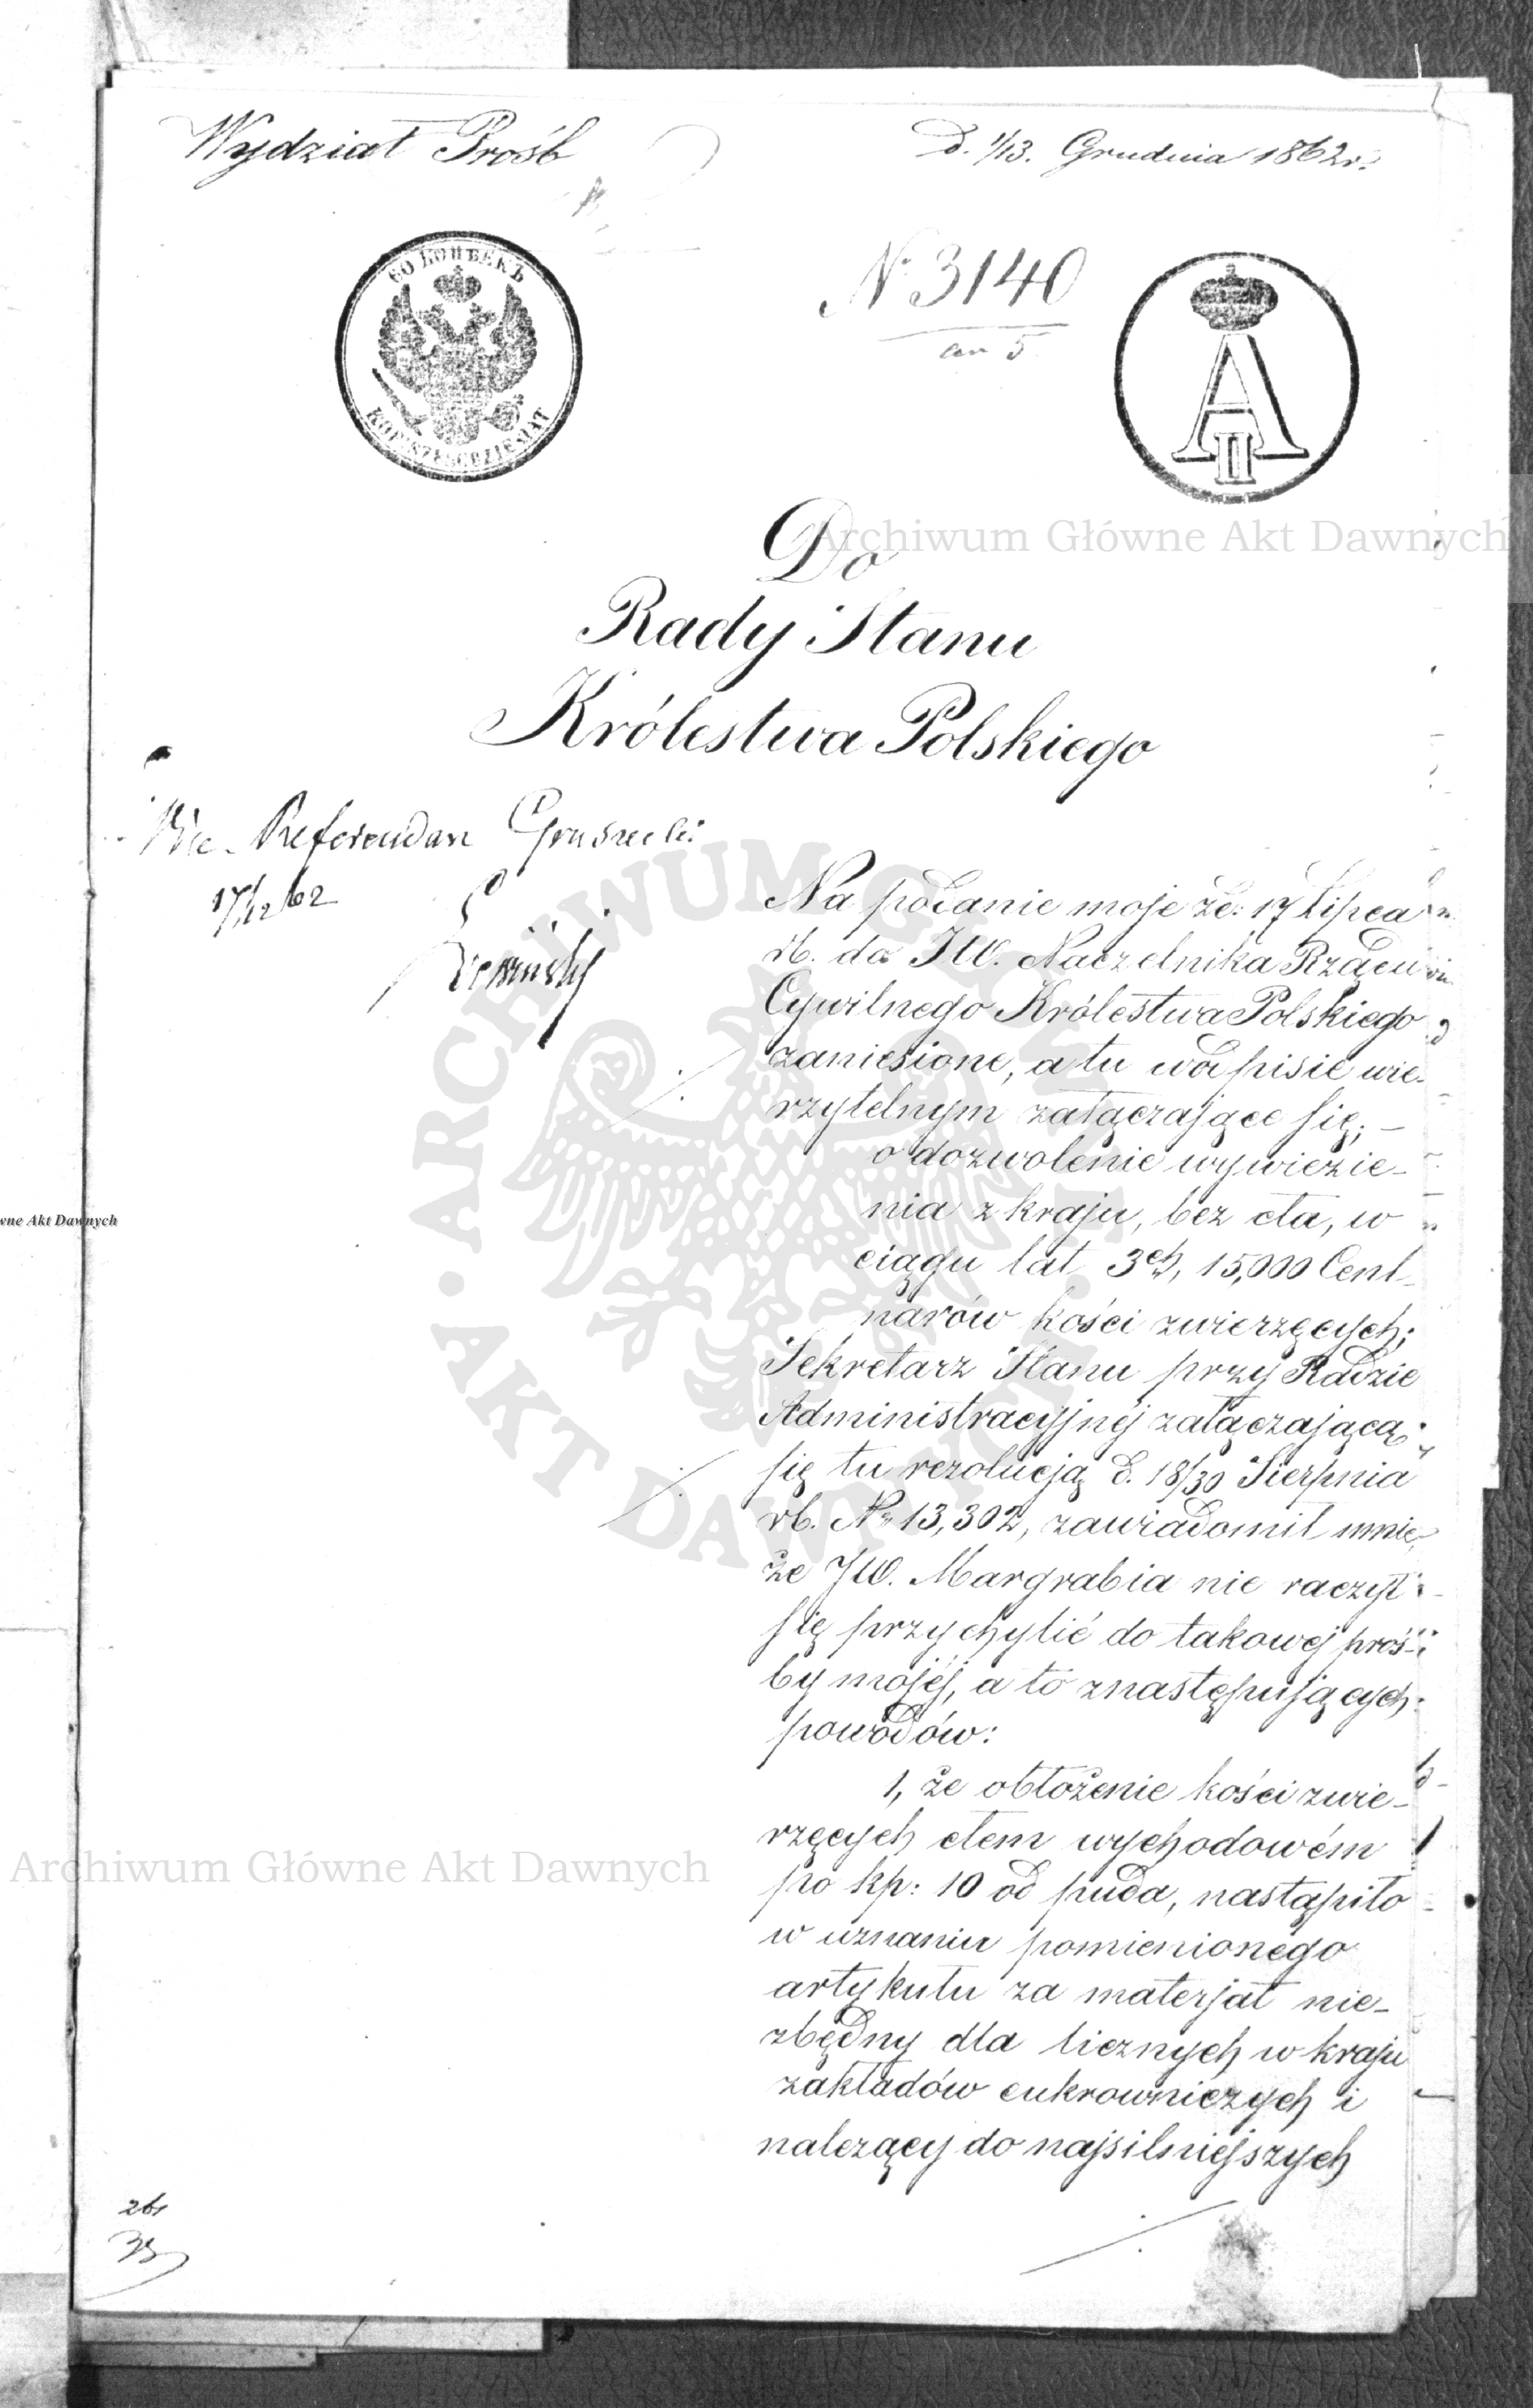 Wydział Prośb
D. 1/13. Grudnia 1862 r.
60 КОПѢЕКЪ
KOP. SZEŚĆDZIESIĄT
№ 3140
A II
Archiwum Główne Akt Dawnych
Do
Rady Stanu
Królestwa Polskiego
Referendarz Gruszecki
17/12 62
Na podanie moje z d: 17 Lipca
rb. do JW. Naczelnika Rządu
Cywilnego Królestwa Polskiego
zaniesione, a tu w odpisie wie-
rzytelnym załączające się; –
o dozwolenie wywiezie-
nia z kraju, bez cła, w
ciągu lat 3ch, 15,000 Cent-
narów kości zwierzęcych;
Sekretarz Stanu przy Radzie
Administracyjnej załączającą
się tu rezolucją d. 18/30 Sierpnia
rb. № 13,302, zawiadomił mnie,
że JW. Margrabia nie raczył
się przychylić do takowej proś-
by mojéj, a to z następujących
powodów:
1, że obłożenie kości zwie-
rzęcych cłem wychodowém
po kp: 10 od puda, nastąpiło
w uznaniu pomienionego
artykułu za materjał nie-
zbędny dla licznych w kraju
zakładów cukrowniczych i
należący do najsilniejszych
ARCHIWUM GŁÓWNE AKT DAWNYCH
wne Akt Dawnych
Archiwum Główne Akt Dawnych